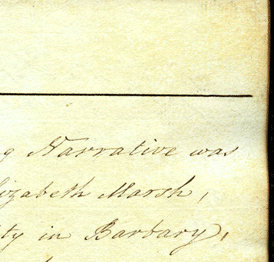 g Narrative was
lizabeth Marsh,
ty in Barbary,